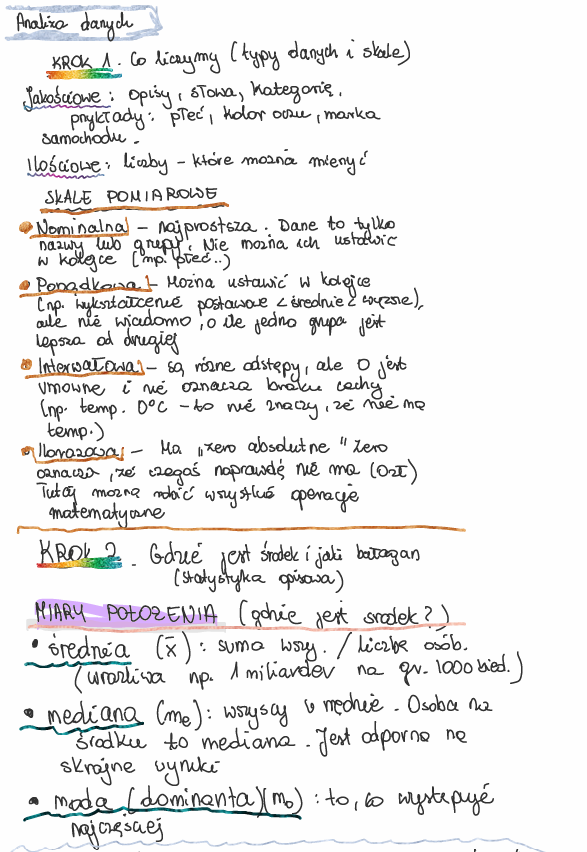 Analiza danych
KROK 1. Co liczymy (typy danych i skale)
Jakościowe: opisy, słowa, kategorie.
przykłady: płeć, kolor oczu, marka
samochodu.
Ilościowe: liczby - które można mierzyć
SKALE POMIAROWE
Nominalna - najprostsza. Dane to tylko
nazwy lub grupy. Nie można ich ustawić
w kolejce (np. płeć..)
Porządkowa - Można ustawić w kolejce
(np. wykształcenie postawowe < średnie < wyższe),
ale nie wiadomo, o ile jedna grupa jest
lepsza od drugiej
Interwałowa - są różne odstępy, ale 0 jest
umowne i nie oznacza braku cechy
(np. temp. 0°C - to nie znaczy, że nie ma
temp.)
Ilorazowa - Ma "zero absolutne" Zero
oznacza, że czegoś naprawdę nie ma (0zł)
Tutaj można robić wszystkie operacje
matematyczne
KROK 2. Gdzie jest środek i jaki bałagan
(statystyka opisowa)
MIARY POŁOŻENIA (gdzie jest srodek?)
• średnia (x̄): suma wszy. / liczbę osób.
(wrażliwa np. 1 miliarder na gr. 1000 bied.)
• mediana (me): wszyscy w rzędzie. Osoba na
środku to mediana. Jest odporna na
skrajne wyniki
• moda (dominanta)(mo): to, co występuje
najczęściej